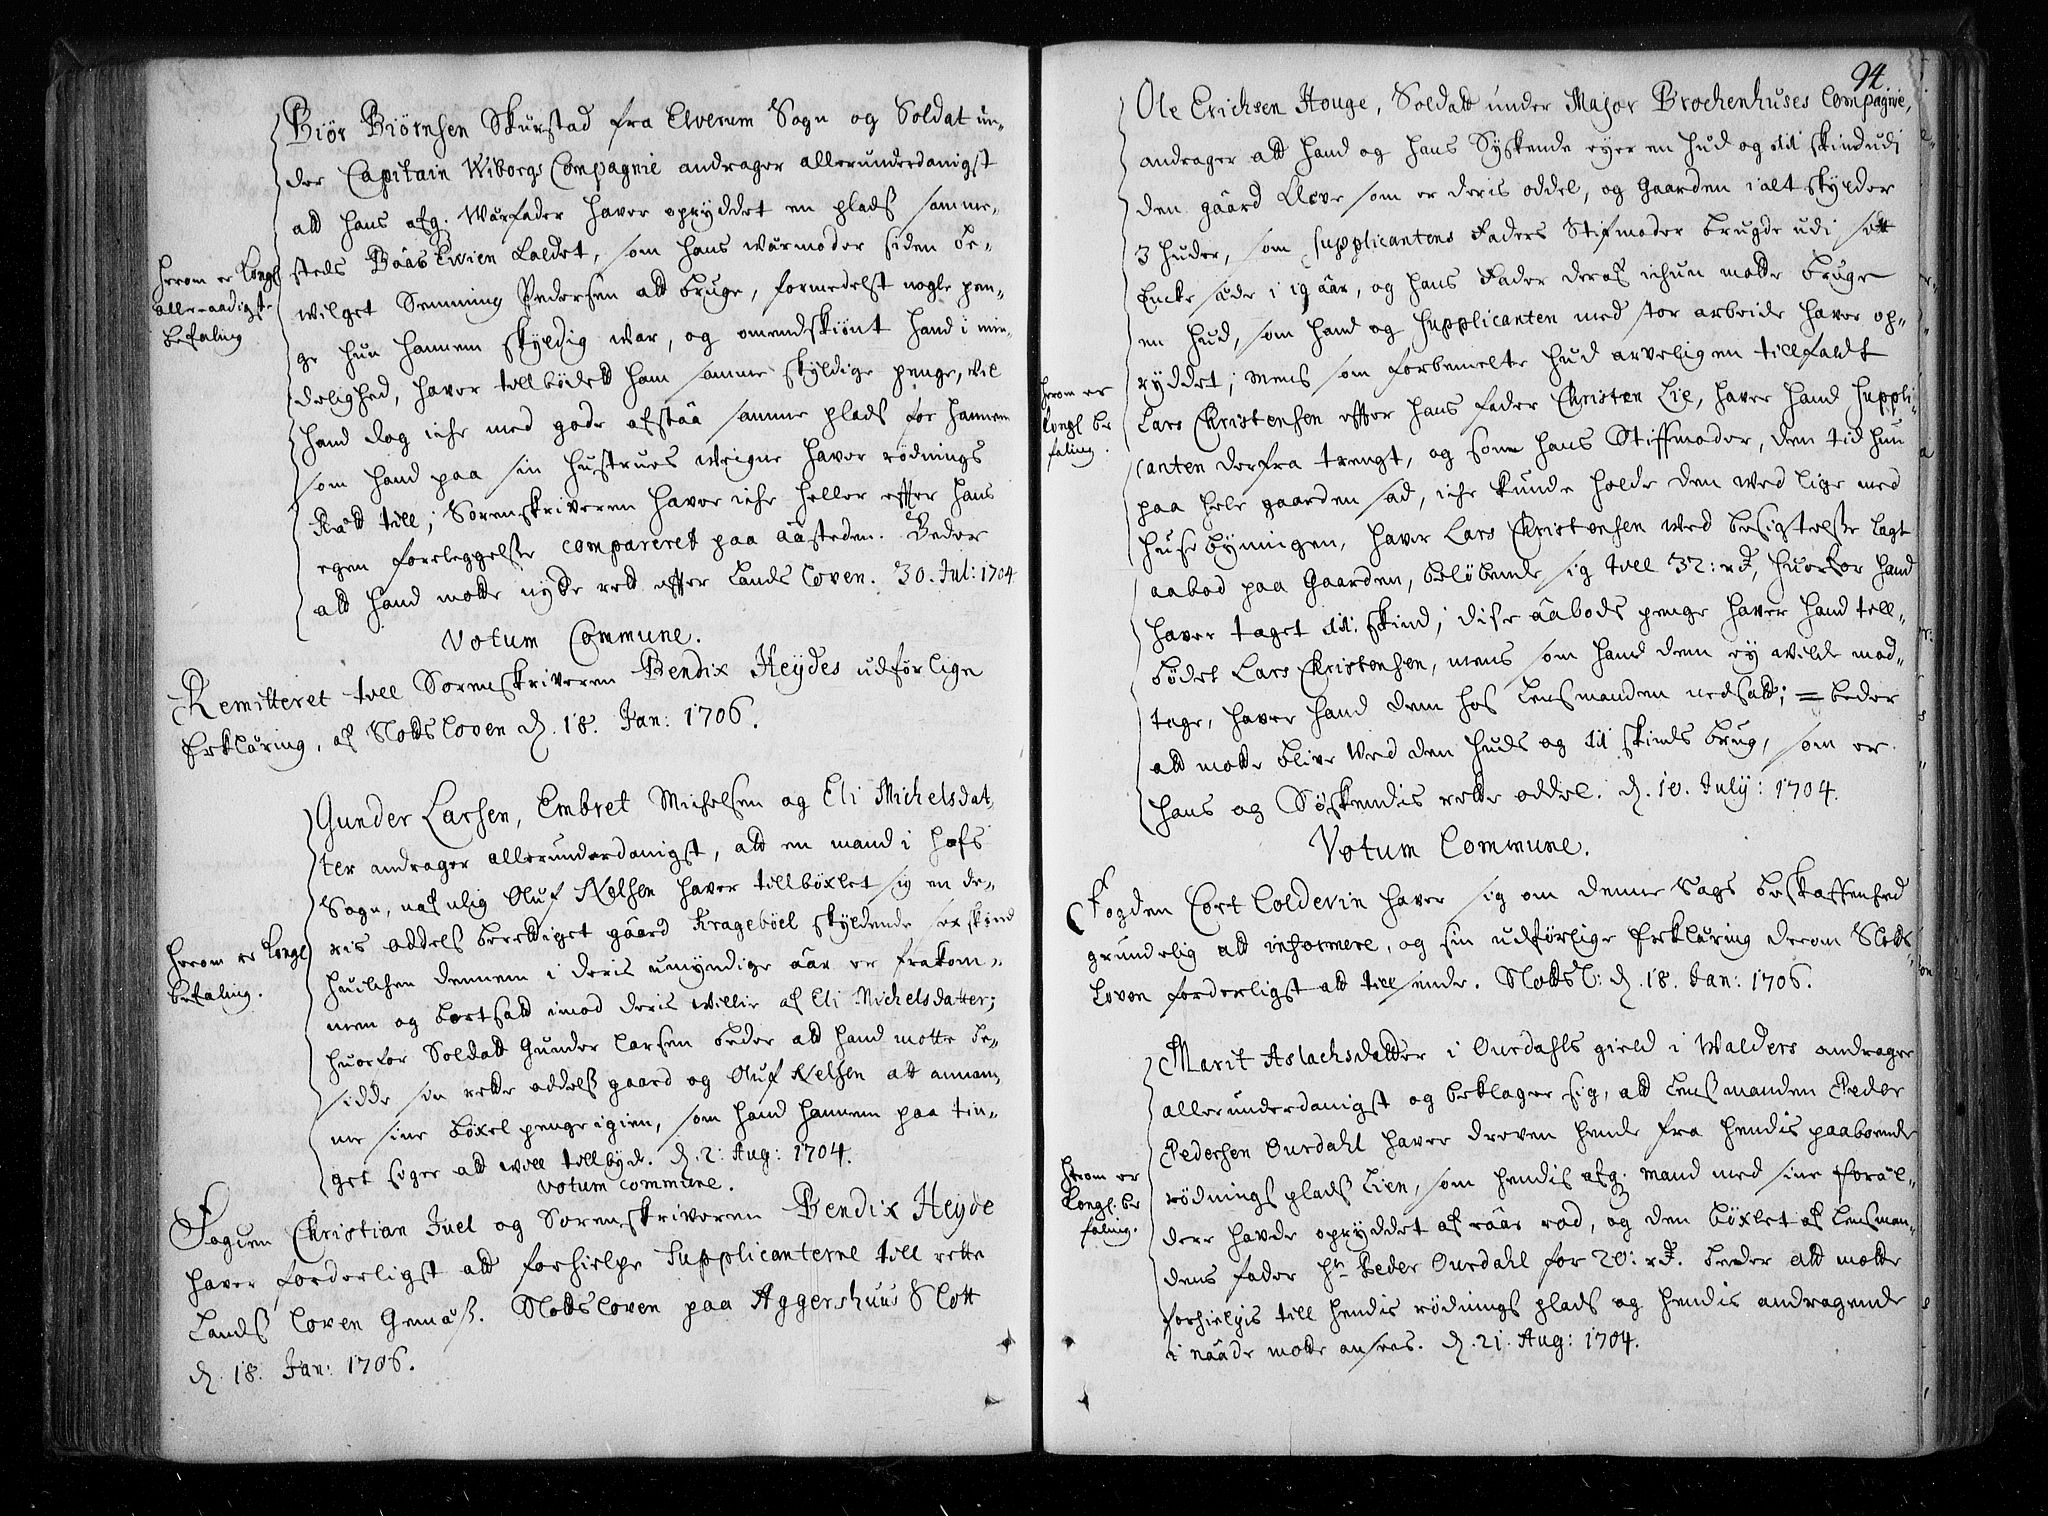 Biör Biörnsen Skurstad fra Elverum Sogn og Soldat un-
der Capitain Wiborgs Compagnie andrager allerunderdanigst
att hans afg. Wärfader hafver opryddet en plads samme-
steds Baas Evien kaldet, som hans wärmoder siden be-
wilget Semming Pedersen att bruge, formedelst nogle pen-
ge hun hannem skyldig war, og omendskiönt hand i min-
delighed, hafver tillbödett ham samme skyldige penge, vil
hand dog iche med gode afstaa samme plads for hannem
som hand paa sin hustrues weigne hafver rödnings
Rätt till; Sorenskriveren hafver iche heller effter hans
egen foreleggelse compareret paa aasteden. Beder
att hand motte nyde rett effter Lands Loven. 30. Jul: 1704
Herom er Kongl.
allernaadigste
befaling
Votum Commune.
Remitteret till Sorenskriveren Bendix Heydes udförlige
Erkläring, af Slotsloven d. 18. Jan: 1706.
Gunder Larsen, Embret Michelsen og Eli Michelsdat-
ter andrager allerunderdanigst, att en mand i Hofs
Sogn, nafnlig Oluf Nelsen hafver tillböxlet sig en de-
ris oddels berettiget gaard Krageböel skyldende sex skind
huilchen dennem i deris umyndige aar er frakom-
men og bortsatt imod deris willie af Eli Michelsdatter;
huorfor Soldatt Gunder Larsen beder att hand motte be-
sidde sin rette oddelß gaard og Oluf Nelsen att annam-
me sine böxel penge igien, som hand hannem paa tin-
get siger att will tillbyde. d. 2: Aug: 1704.
Herom er Kongl
befaling.
votum commune.
Fogden Christian Juel og Sorenskriveren Bendix Heyde
hafver forderligst att forhielpe Supplicanterne till rette
Landß Loven Gemäß. Slotsloven paa Aggershuus Slott
d. 18. Jan: 1706.
94.
Ole Erichsen Houge, Soldatt under Major Brochenhuses Compagnie,
andrager att hand og hans Syskende eyer en hud og skind udi
den gaard som er deris oddel, og Gaarden i alt skylder
3 huder, som supplicantens Faders Stifmoder brugde udi sitt
Encke säde i 19 aar, og hans Fader deraf ichun motte bruge
en hud, som hand og Supplicanten med stor arbeide hafver op-
ryddet; mens som forbemelte hud arveligen tillfaldt
Lars Christensen effter hans fader Christen Lie, hafver hand suppli-
canten derfra trengt, og som hans Stiffmoder, den tid hun
paa hele gaarden sad, iche kunde holde den wed lige med
huse bygningen, hafver Lars Christensen wed besigtelse lagt
aabod paa Gaarden, belöbende sig till 32: rd, huorfor hand
hafver taget skind; dise aabods penge hafver hand till-
bödet Lars Christensen, mens som hand dem ey wilde mod-
tage, hafver hand dem hos Lensmanden nedsatt; = beder
att motte blive wed den huds og skinds brug, som er
hans og Söskendis rette oddel. d. 10. July: 1704.
Herom er
Kongl be
faling.
Votum Commune.
Fogden Cort Coldevin hafver sig om denne Sags beskaffenhed
grundelig att informere, og sin udförlige Erkläring derom Slotts-
Loven forderligst att tillsende. Slotsl: d. 18. Jan: 1706.
Marit Aslachsdatter i Ourdahls gield i Walders andrager
allerunderdanigst og beklager sig, att Lensmanden Peder
Pedersen Ourdahl hafver dreven hende fra hendis paaboende
rödnings plads Lien, som hendis afg. mand med sine foräl-
dere hafde opryddet af raae rod, og den böxlet af Lensman-
dens fader hr Peder Ourdahl for 20: rd. beder att motte
forhielpis till hendis rödnings plads og hendis andragende
i naade motte ansees. d. 21. Aug: 1704.
Herom er
Kongl. be
faling.